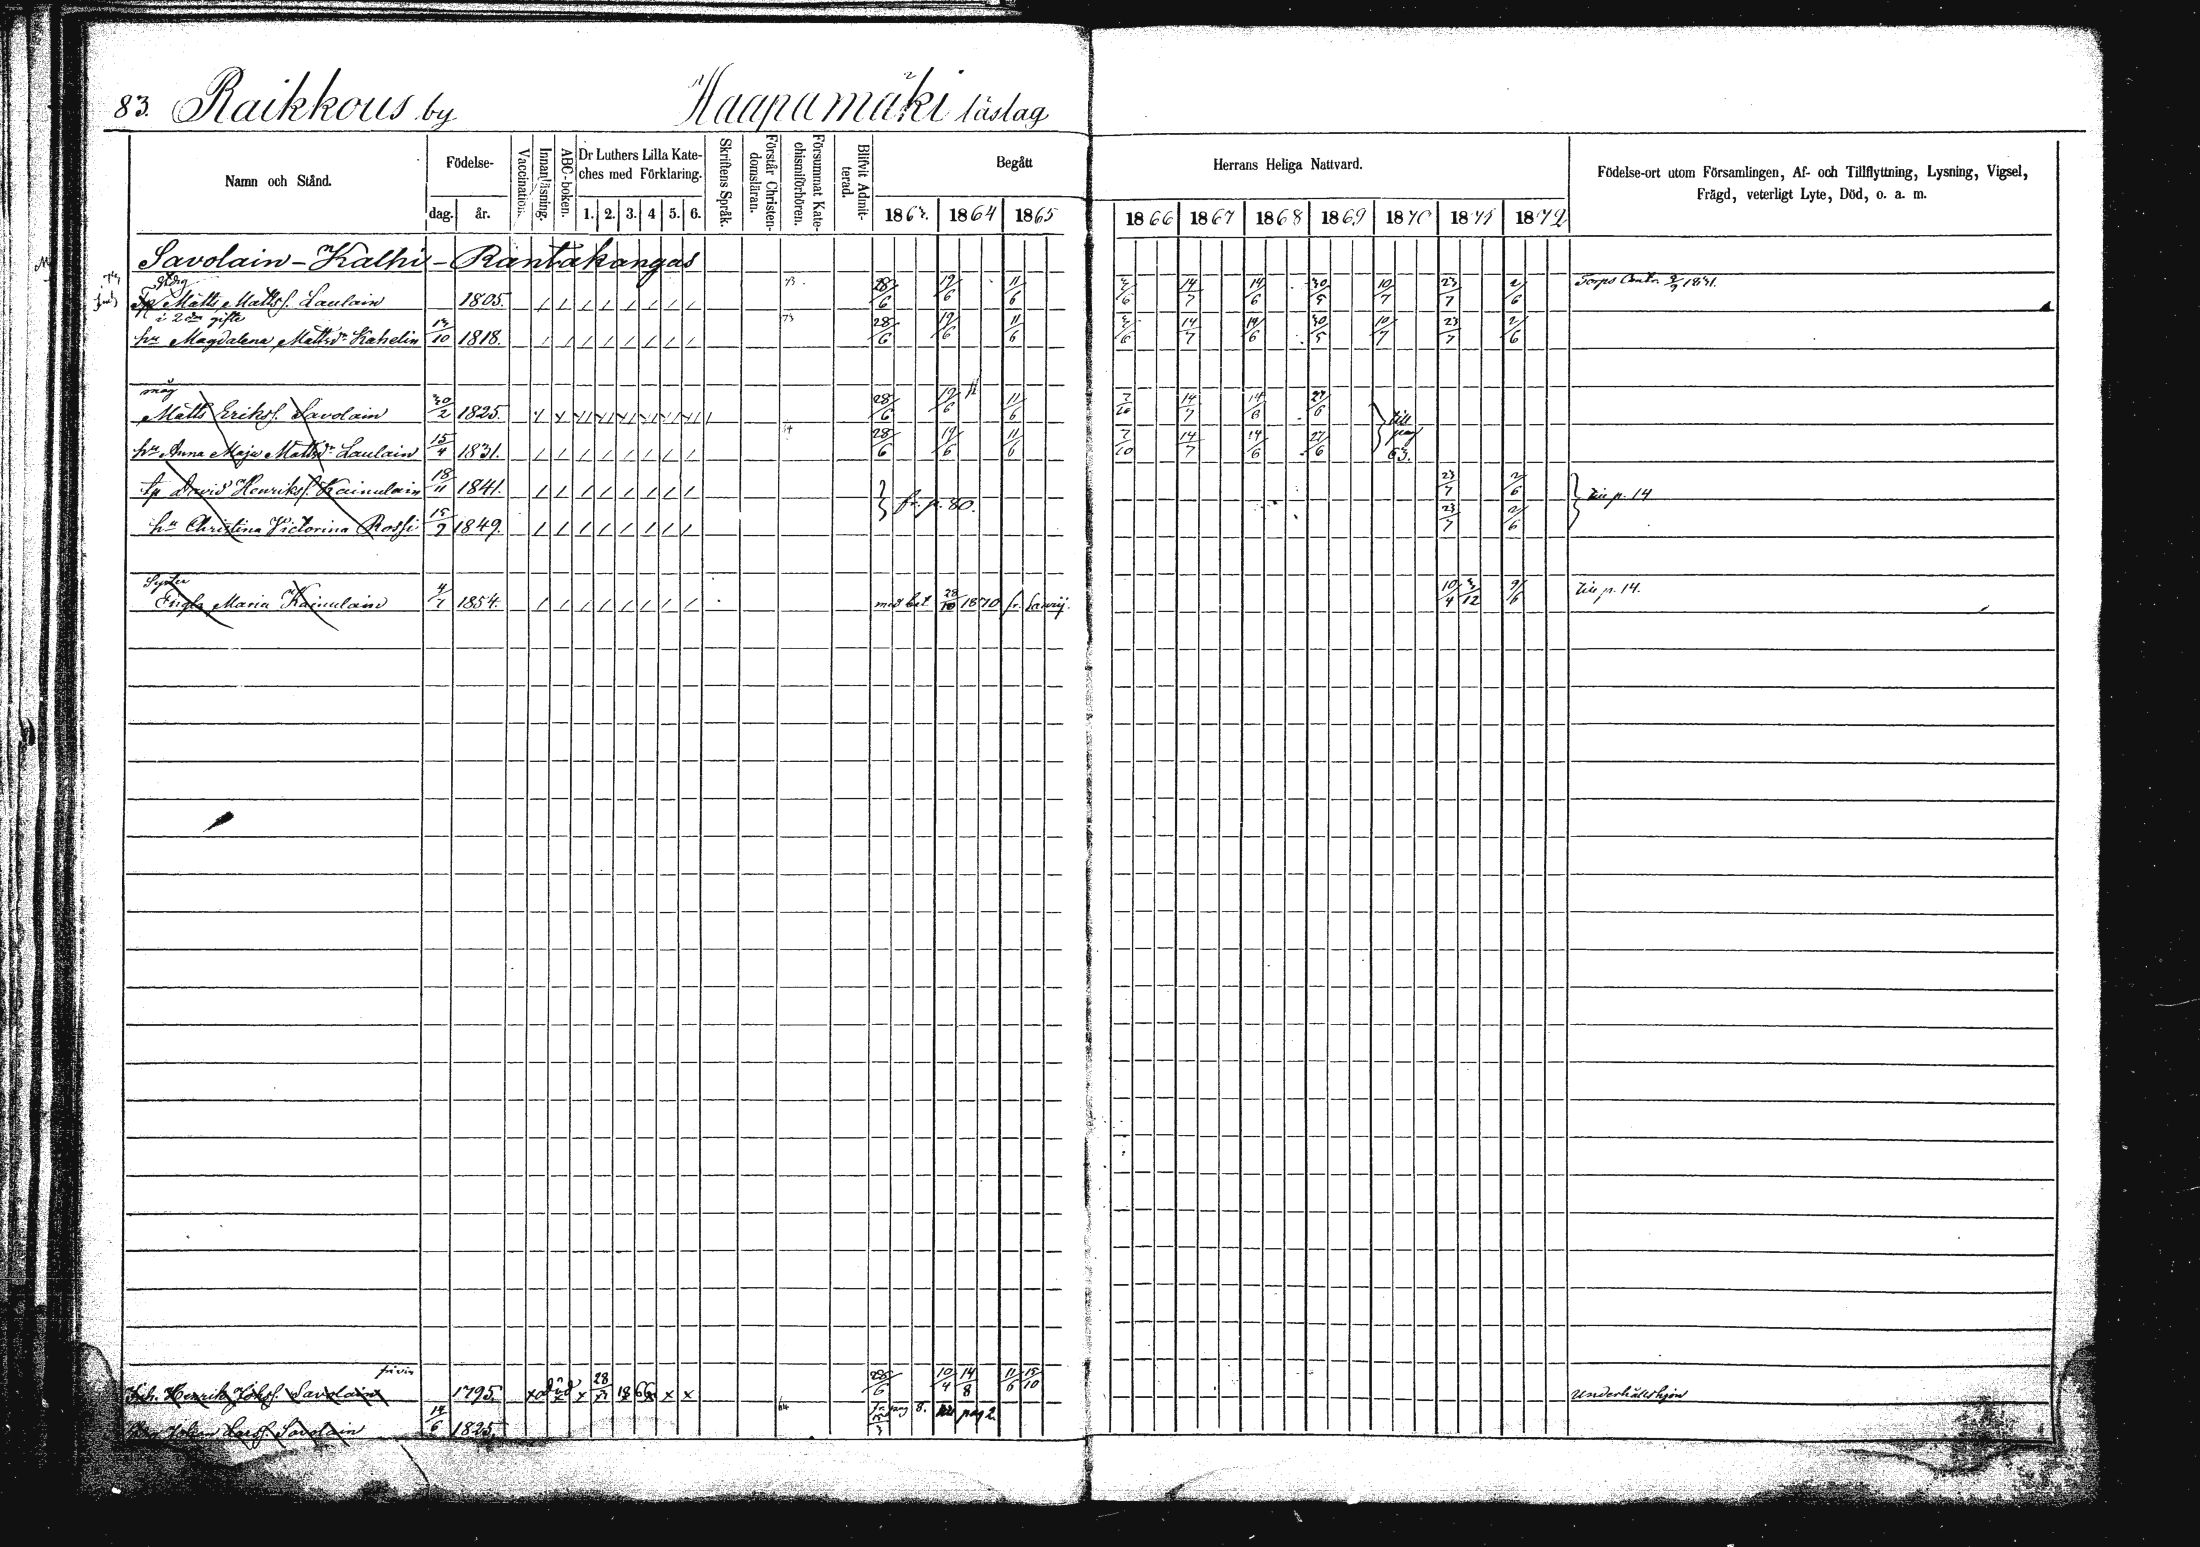 83. Raikkous by Haapamäki läslag
Namn och Stånd. Födelse- Vaccination. Innanläsning. ABC-boken. Dr Luthers Lilla Kateches med Förklaring. Skriftens Språk. Förstår Christendomsläran. Försummat Katechismiförhören. Blifvit Admitterad. Begått Herrans Heliga Nattvard. Födelse-ort utom Församlingen, Af- och Tillflyttning, Lysning, Vigsel, Frägd, veterligt Lyte, Död, o. a. m.
dag. år. 1. 2. 3. 4 5. 6. 1863. 1864 1865 1866 1867 1868 1869 1870 1871 1872
Savolain - Kalhi - Rantakangas
Matts Mattss. Laulain 1805. 28/6 19/6 11/6 14/7 14/6 30/5 10/7 23/7 2/6 Torps Contr. 1831.
i 2dra gifte
hu Magdalena Mattsdr Kahelin 13/10 1818. 28/6 19/6 11/6 14/7 14/6 30/5 10/7 23/7 2/6
måg
Matts Erikss. Savolain 30/2 1825. 28/6 19/6 11/6 7/10 14/7 14/6 27/6 till pag 63.
hu Anna Maja Mattsdr Laulain 15/4 1831. 28/6 19/6 11/6 7/10 14/7 14/6 27/6
David Henrikss. Kainulain 18/11 1841. fr. p. 80. 23/7 2/6 till p. 14
hu Christina Victorina Rossi 15/7 1849. 23/7 2/6
Syster
Maria Kainulain 4/7 1854. med bet 28/10 1870 fr. 10/4 3/12 9/6 till p. 14.
Inh. Henrik Johss. Savolain 1795. död 28/ 1866 28/6 10/4 14/8 11/6 15/10 Underhållshjon
Johan Larss. Savolain 14/6 1825. fr. pag 8. till pag 2.